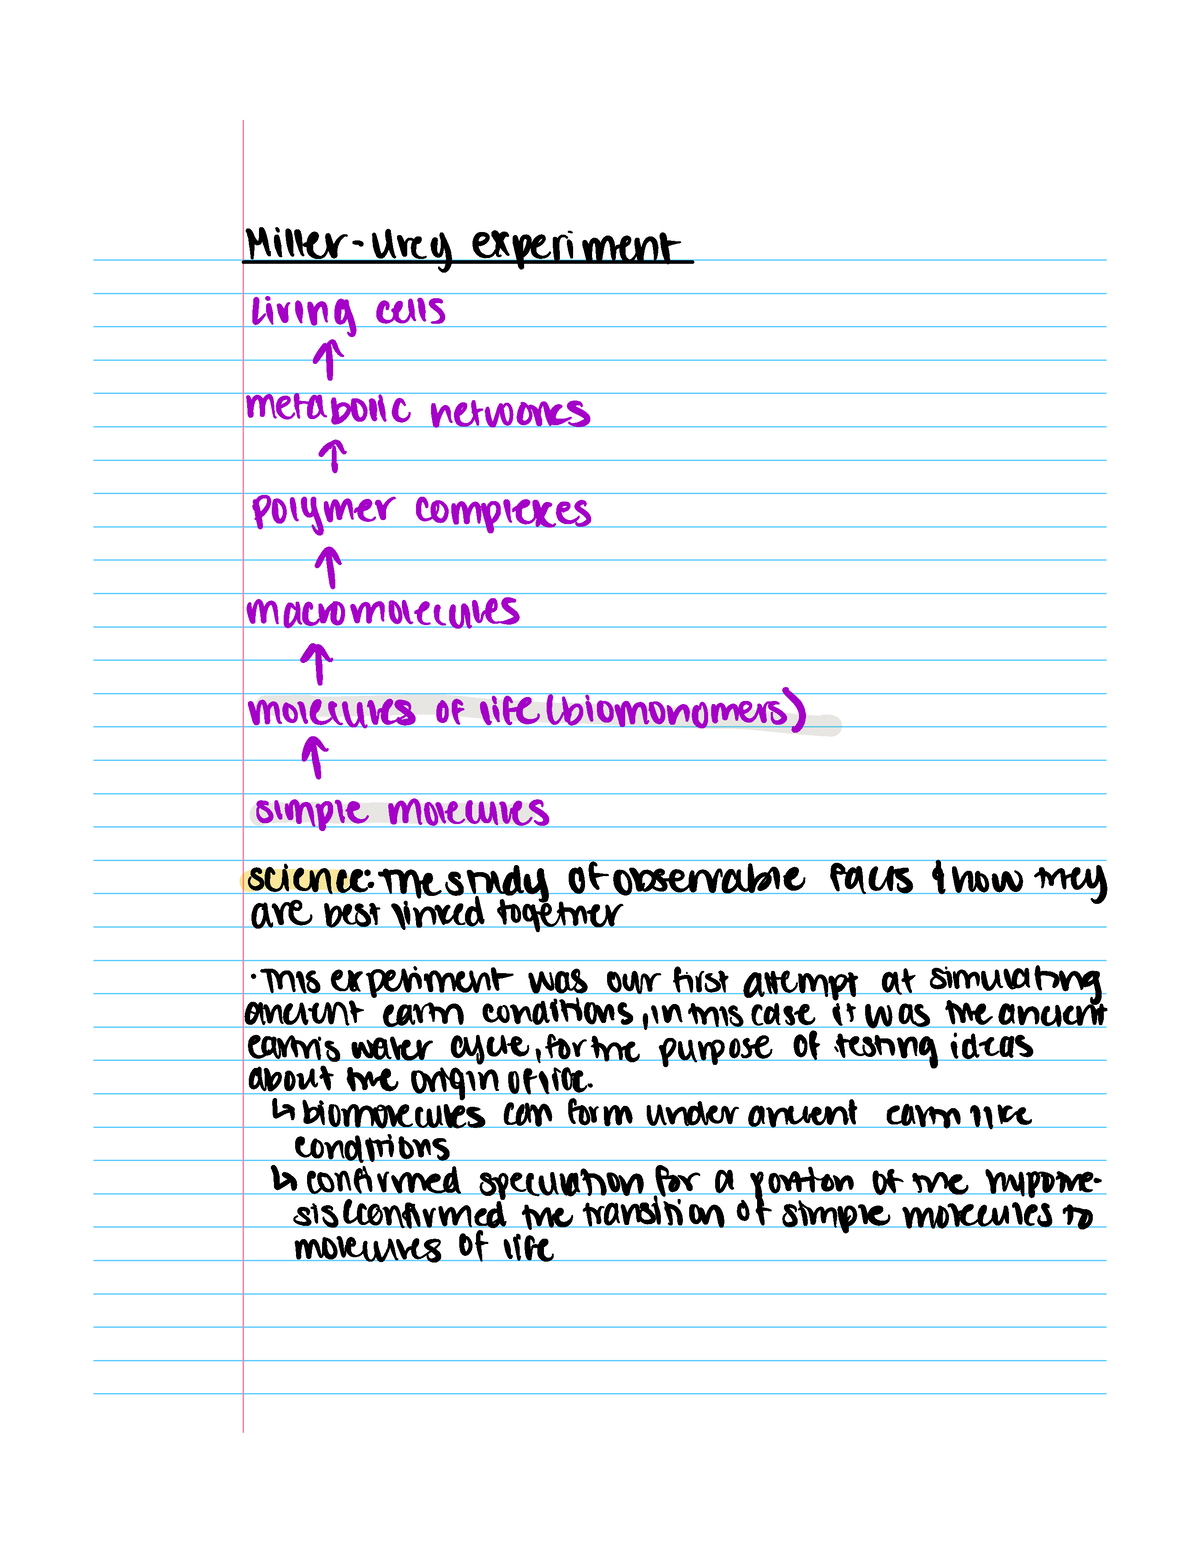 Miller-Urey experiment
living cells
↑
metabolic networks
↑
polymer complexes
↑
macromolecules
↑
molecules of life (biomonomers)
↑
simple molecules
science: the study of observable facts & how they
are best linked together
· This experiment was our first attempt at simulating
ancient earth conditions, in this case it was the ancient
earth's water cycle, for the purpose of testing ideas
about the origin of life.
↳ biomolecules can form under ancient earth like
conditions
↳ confirmed speculation for a portion of the hypothe-
sis (confirmed the transition of simple molecules to
molecules of life